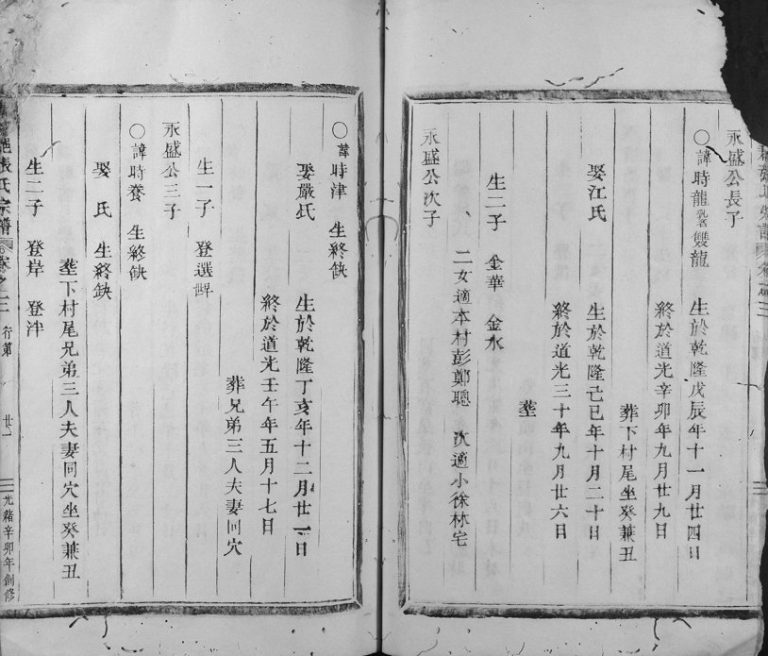 永盛公長子
〇諱時龍乳名雙龍 生於乾隆戊辰年十一月廿四日
終於道光辛卯年九月廿九日
葬下村尾坐癸兼丑
娶江氏 生於乾隆己巳年十月二十日
終於道光三十年九月廿六日
塟
生二子 金華 金水
二女適本村彭鄭聰 次適小徐林宅
永盛公次子
〇諱時津 生終缺
娶嚴氏 生於乾隆丁亥年十二月廿一日
終於道光壬午年五月十七日
葬兄弟三人夫妻回穴
生一子 登選
永盛公三子
〇諱時養 生終缺
娶 氏 生終缺
塟下村尾兄弟三人夫妻回穴坐癸兼丑
生二子 登岸 登泮
張氏宗譜 卷之三 行第 廿一 光緒辛卯年創修